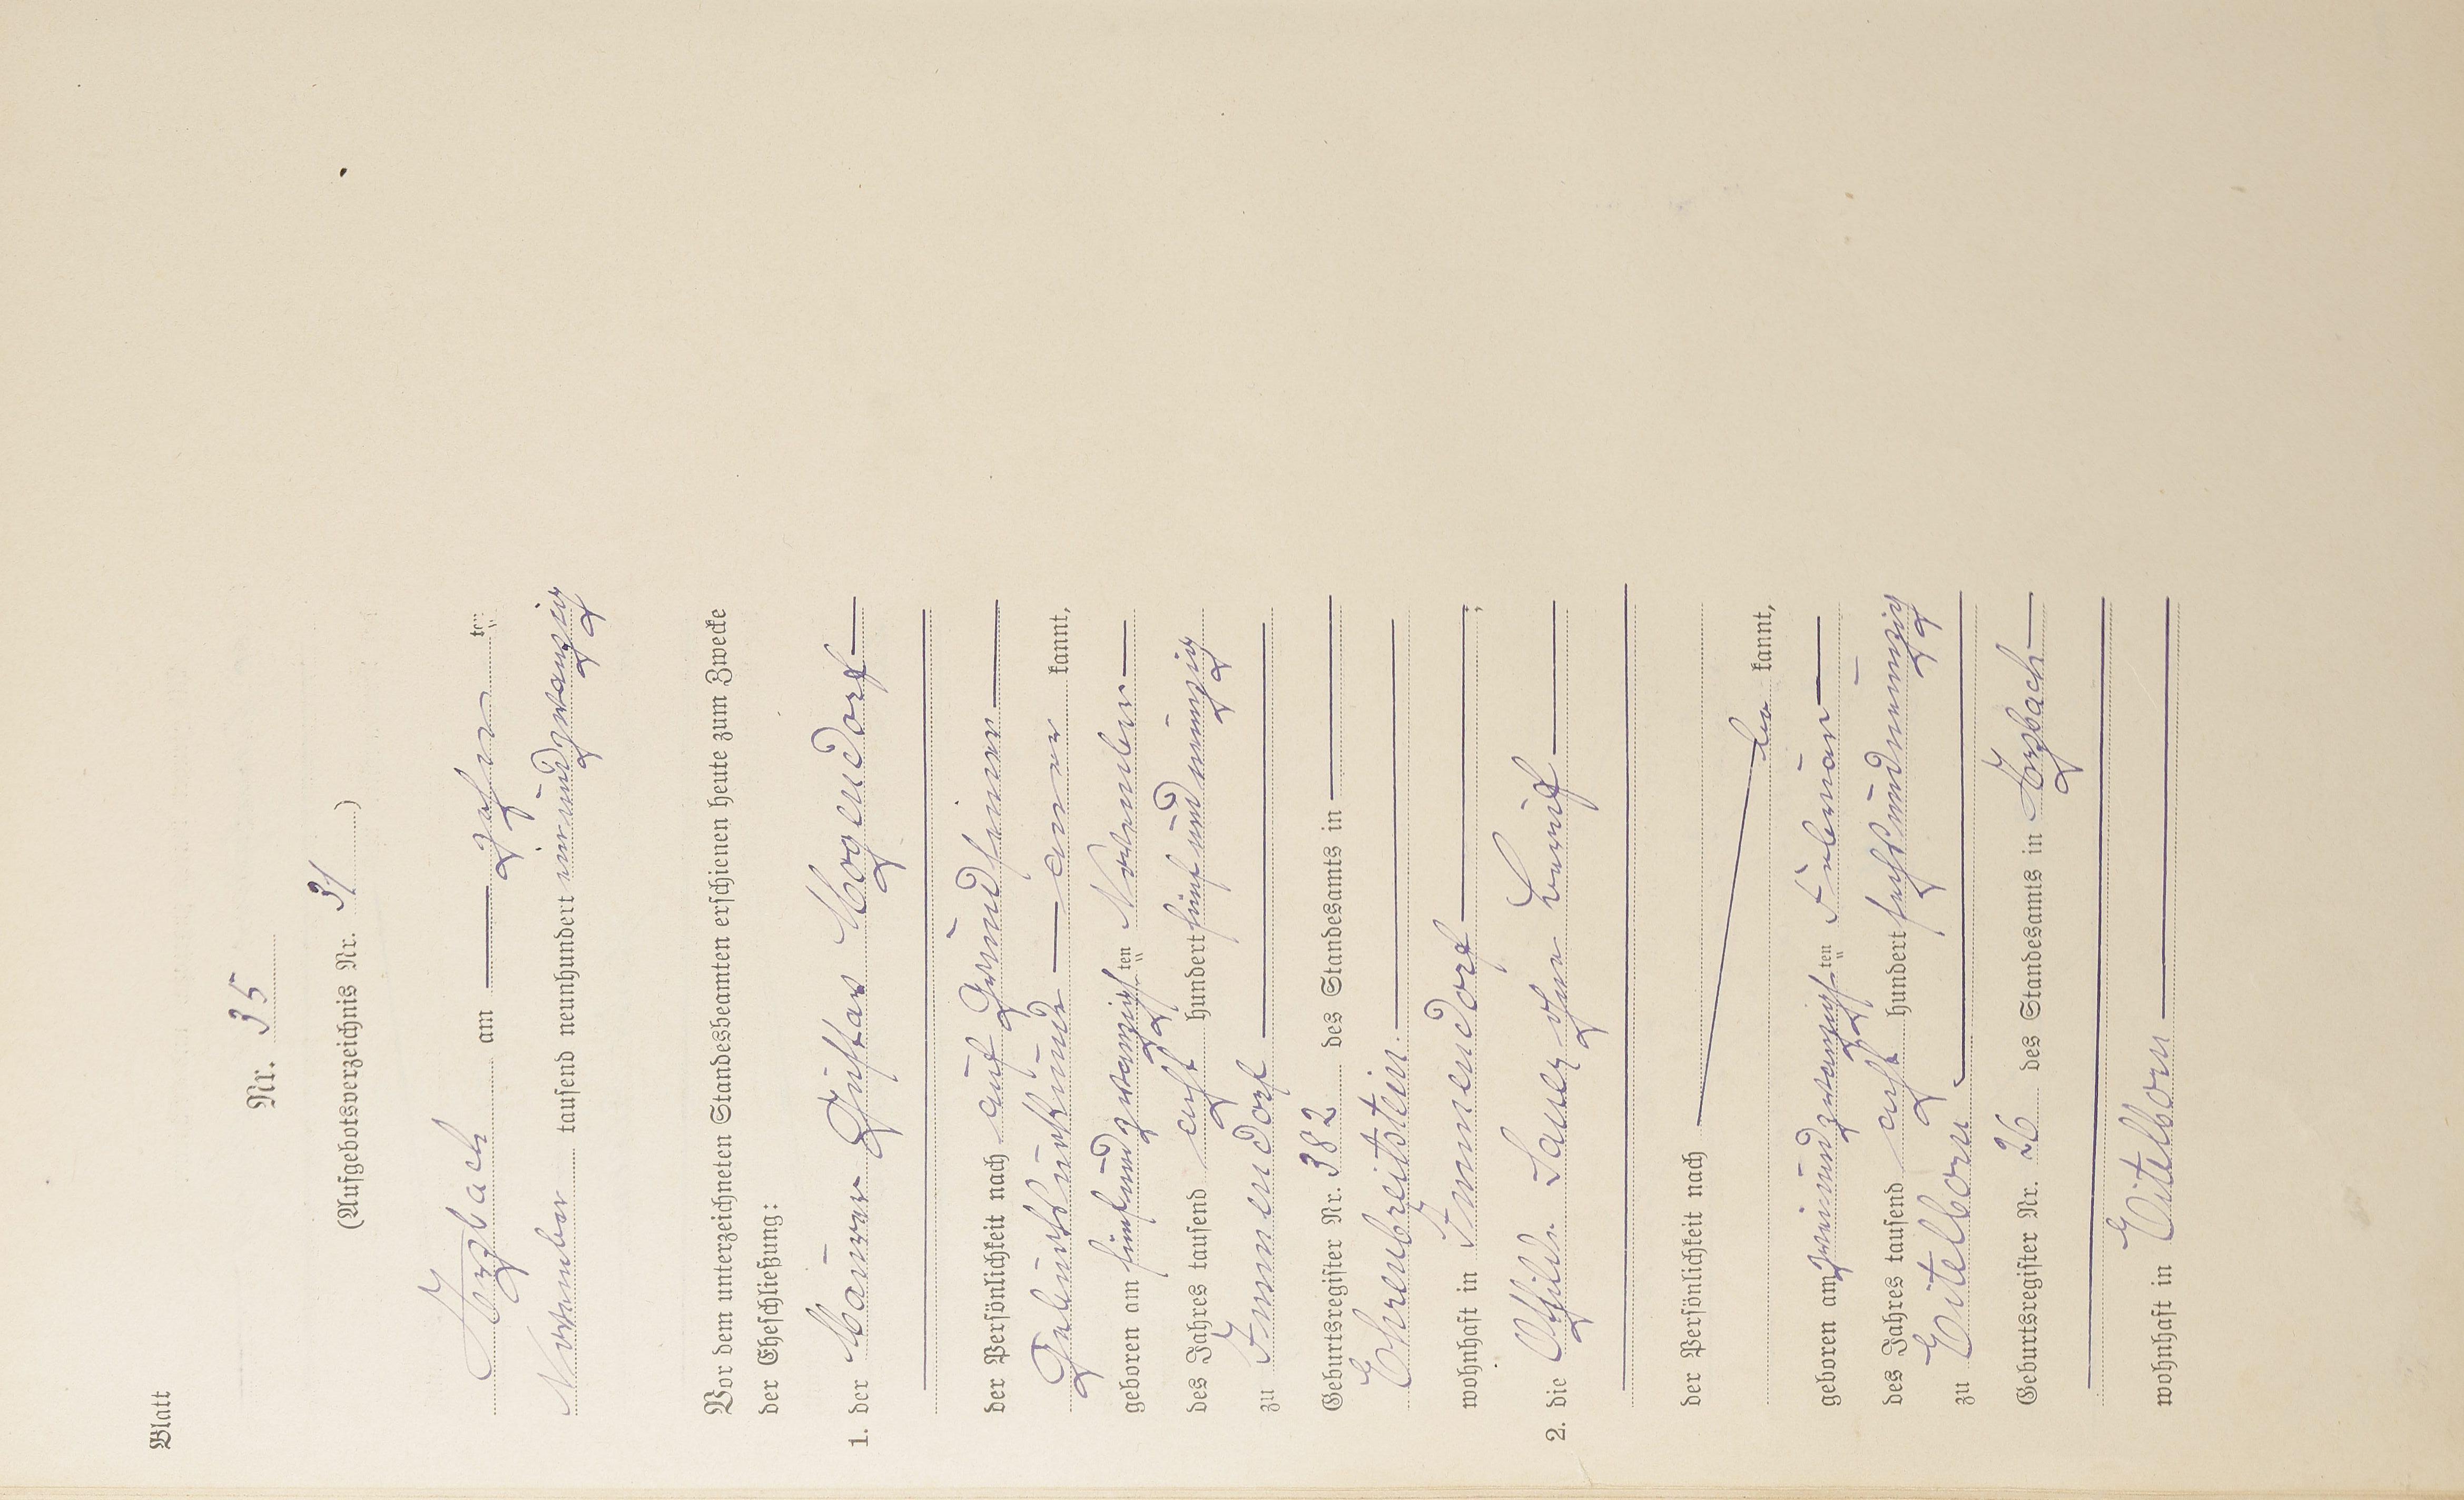 Blatt
Nr. 35
(Aufgebotsverzeichnis Nr. 31)
Arzbach am zehn ten
November tausend neunhundert einundzwanzig
Vor dem unterzeichneten Standesbeamten erschienen heute zum Zwecke
der Eheschließung:
1. der Maurer Gustav Mogendorf
der Persönlichkeit nach auf Grund seiner
Geburtsurkunde aner kannt,
geboren am fünfundzwanzigsten November
des Jahres tausend acht hundert fünfundneunzig
zu Immendorf
Geburtsregister Nr. 382 des Standesamts in
Ehrenbreitstein.
wohnhaft in Immendorf;
2. die Ottilie Sauer ohne Beruf
der Persönlichkeit nach
be kannt,
geboren am zweiundzwanzigsten Februar
des Jahres tausend acht hundert sechsundneunzig
zu Eitelborn
Geburtsregister Nr. 26 des Standesamts in Arzbach
wohnhaft in Eitelborn